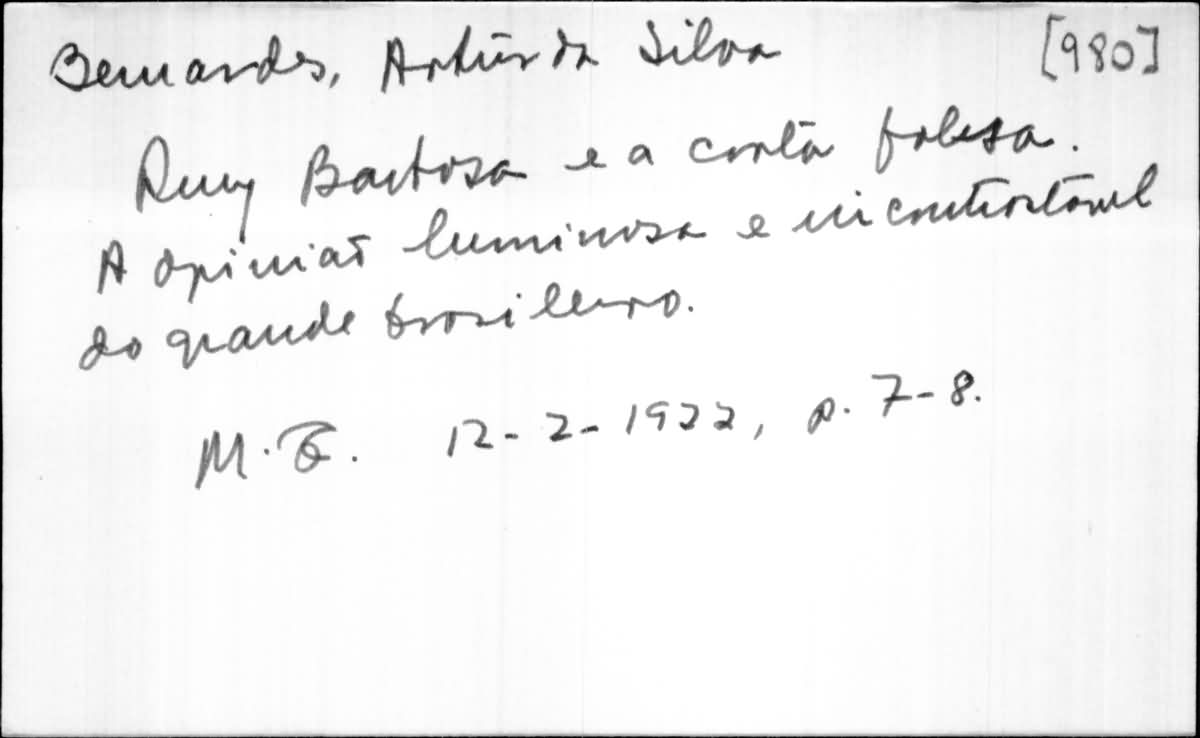 Bernardes, Artur da Silva [980]
Ruy Barbosa e a carta falsa.
A opinião luminosa e incontrastável
do grande brasileiro.
M.G. 12-2-1922, p. 7-8.